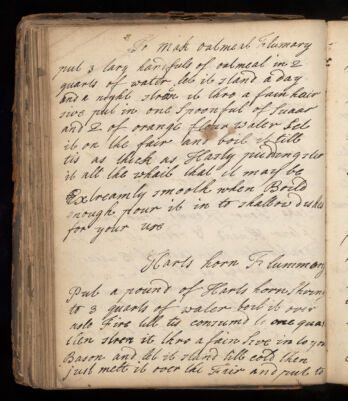 To Mak oatmeal Flumary
put 3 larg handfuls of oatmeal in 2
quarts of water let it stand a day
and a night stren it thro a fain hair
sive put in one spoonful of suaar
and 2 of orange flour water Set
it on the fair and boil it till
tis as thick as Hasty puding ster
it all the whail that it may be
Extreamly smooth when Boild
enough pour it in to shallow dishes
for your use
Harts horn Flummary
Put a pound of Harts horn Shavin
to 3 quarts of water boil it over
a slo Fire till tis consumd to one quar
then stren it thro a fain sive in to you
Bason and let it stand till cold then
just melt it over the Fair and put to